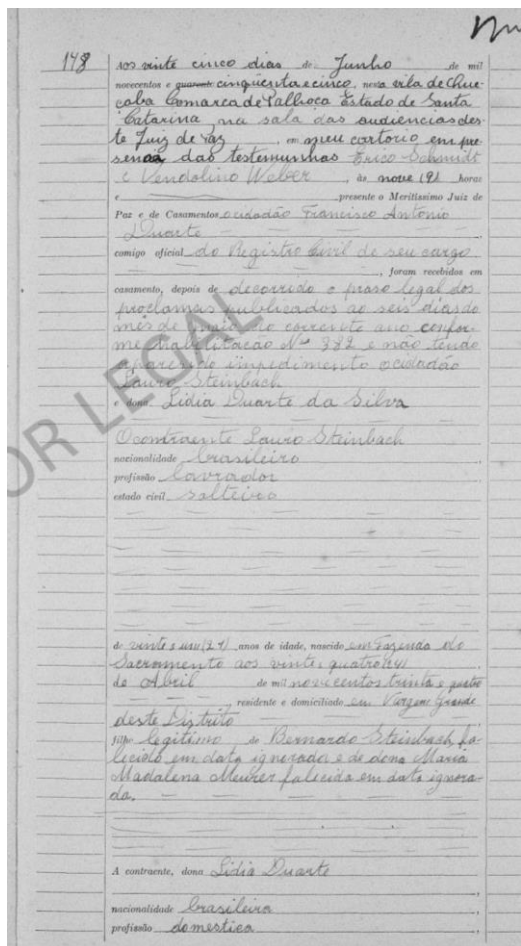 148
Aos vinte cinco dias de Junho de mil
novecentos e quarenta cinqüenta e cinco, nesta vila de
caba Comarca de Palhoça Estado de Santa
Catarina, na sala das audiencias des-
te Juiz de Paz, em meu cartorio em pre-
sença das testemunhas Erico Schmidt
e Vendolino Weber, ás nove (9) horas
e, presente o Meritíssimo Juiz de
Paz e de Casamentos o cidadão Francisco Antonio
Duarte
comigo oficial do Registro Civil de seu cargo
, foram recebidos em
casamento, depois de decorrido o praso legal dos
proclamas publicados ao seis dias do
mês de maio do corrente ano confor-
me habilitação Nº 382 e não tendo
aparecido impedimento o cidadão
Lauro Steinbach
e dona Lidia Duarte da Silva
O contraente Lauro Steinbach
nacionalidade brasileiro,
profissão lavrador
estado civil solteiro
OR LEGAL
de vinte e um (21) anos de idade, nascido em Fazenda do
Sacramento aos vinte e quatro (24)
de Abril de mil novecentos trinta e quatro
, residente e domiciliado em Vargem Grande
deste Distrito
filho legitimo de Bernardo Steinbach fa-
lecido em data ignorada e de dona Maria
Madalena Meurer falecida em data ignora-
da.
A contraente, dona Lidia Duarte
,
nacionalidade brasileira,
profissão domestica,